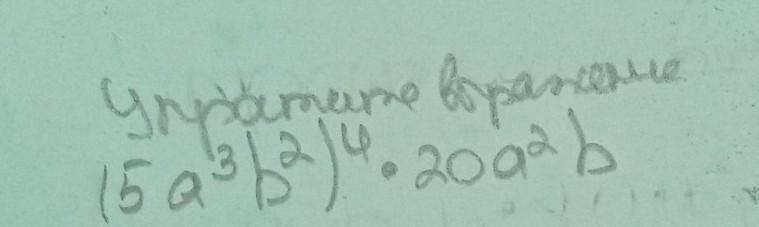 Упростите выражение
(5a³b²)⁴ · 20a²b